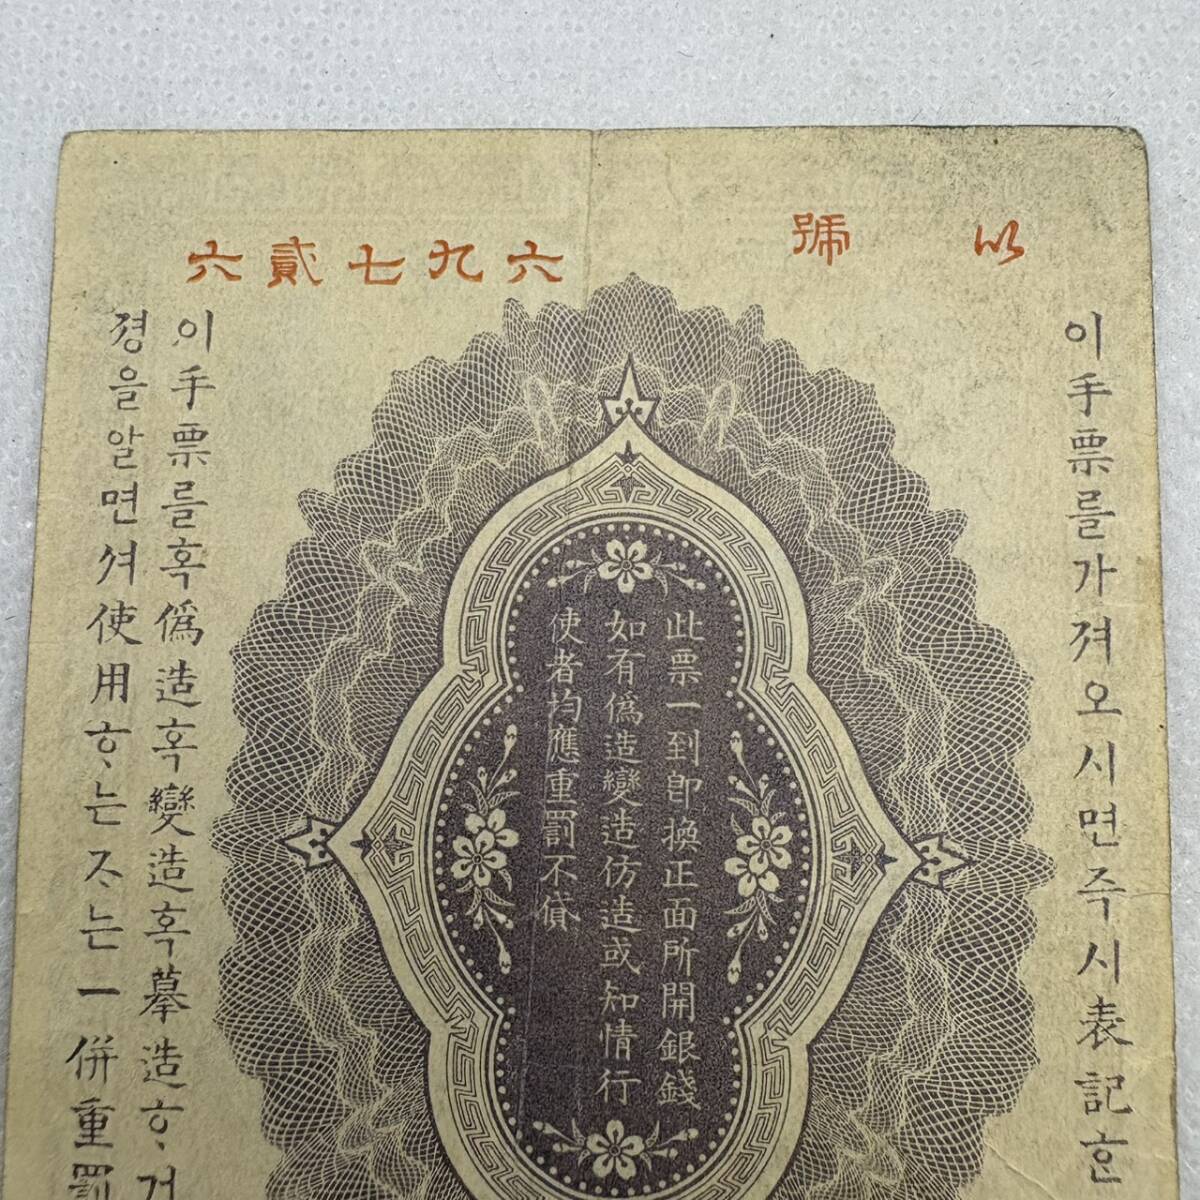 以號
六九七貳六
이手票를가져오시면즉시表記ᄒᆞᆫ
此票一到卽換正面所開銀錢
如有僞造變造仿造或知情行
使者均應重罰不貸
이手票를혹僞造혹變造혹摹造ᄒᆞ거
졍을알면셔使用ᄒᆞ는ᄌᆞ는一併重罰